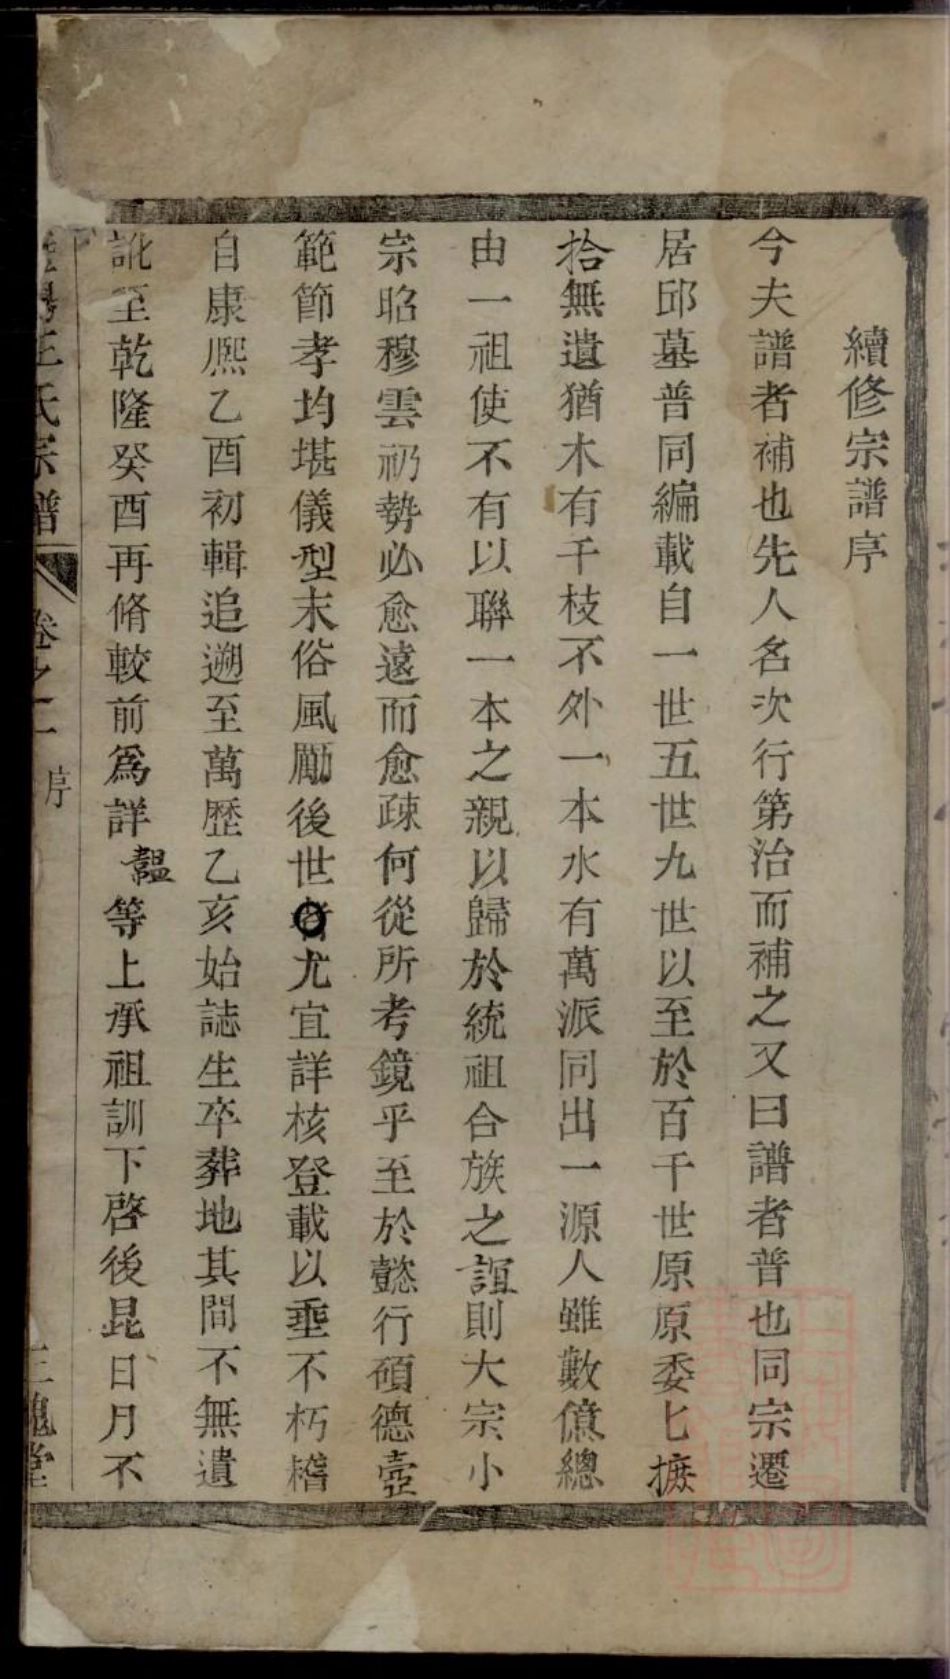 續修宗譜序
今夫譜者補也先人名次行第治而補之又曰譜者普也同宗遷
居邱墓普同編載自一世五世九世以至於百千世原原委匕摭
拾無遺猶木有千枝不外一本水有萬派同出一源人雖數億總
由一祖使不有以聯一本之親以歸於統祖合族之誼則大宗小
宗昭穆雲礽勢必愈遠而愈疎何從所考鏡乎至於懿行碩德壼
範節孝均堪儀型末俗風勵後世者尤宜詳核登載以垂不朽稽
自康熈乙酉初輯追遡至萬歴乙亥始誌生卒葬地其間不無遺
訛至乾隆癸酉再脩較前爲詳韞等上承祖訓下啓後昆日月不
王氏宗譜 卷之一 序 三槐堂